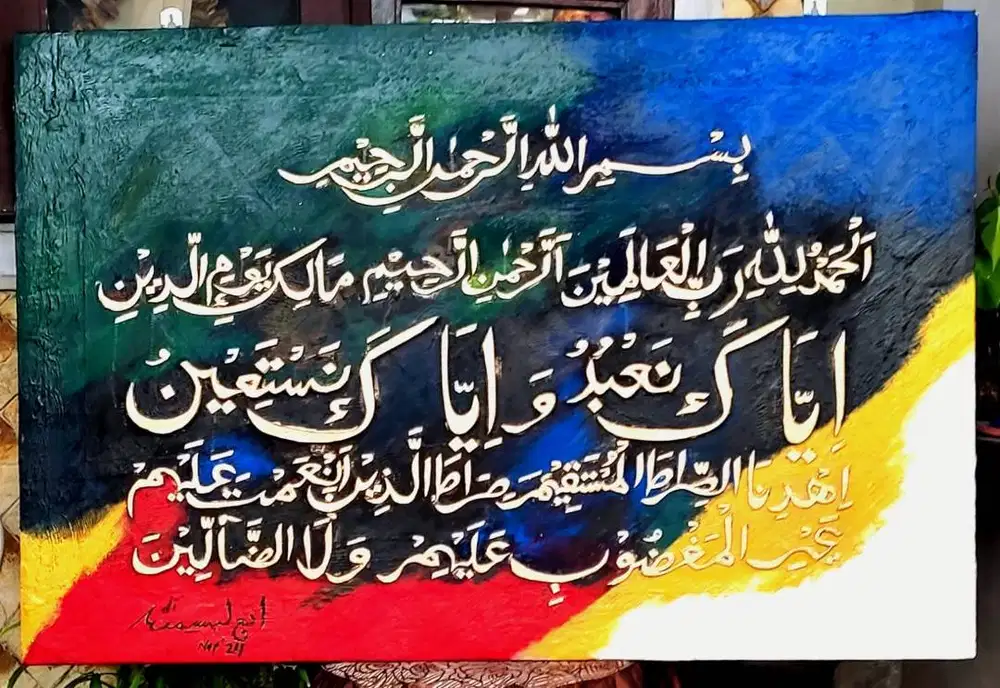 بِسْمِ اللهِ الرَّحْمٰنِ الرَّحِيْمِ
اَلْحَمْدُ لِلّٰهِ رَبِّ الْعَالَمِيْنَ اَلرَّحْمٰنِ الرَّحِيْمِ مَالِكِ يَوْمِ الدِّيْنِ
اِيَّاكَ نَعْبُدُ وَاِيَّاكَ نَسْتَعِيْنُ
اِهْدِنَا الصِّرَاطَ الْمُسْتَقِيْمَ صِرَاطَ الَّذِيْنَ اَنْعَمْتَ عَلَيْهِمْ
غَيْرِ الْمَغْضُوْبِ عَلَيْهِمْ وَلَا الضَّآلِّيْنَ